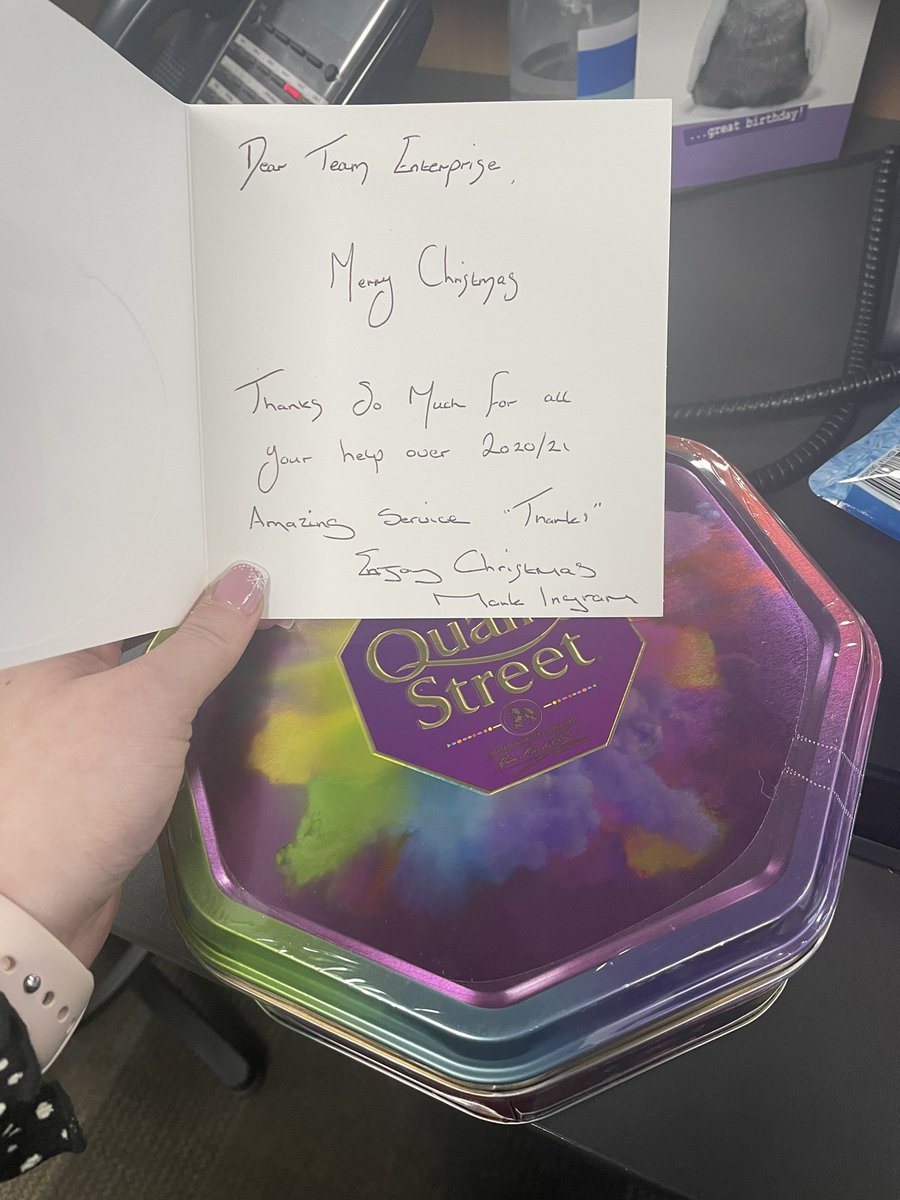 ...great birthday!
Dear Team Enterprise,
Merry Christmas
Thanks So Much for all
your help over 2020/21
Amazing Service "Thanks"
Enjoy Christmas
Mark Ingram
Street